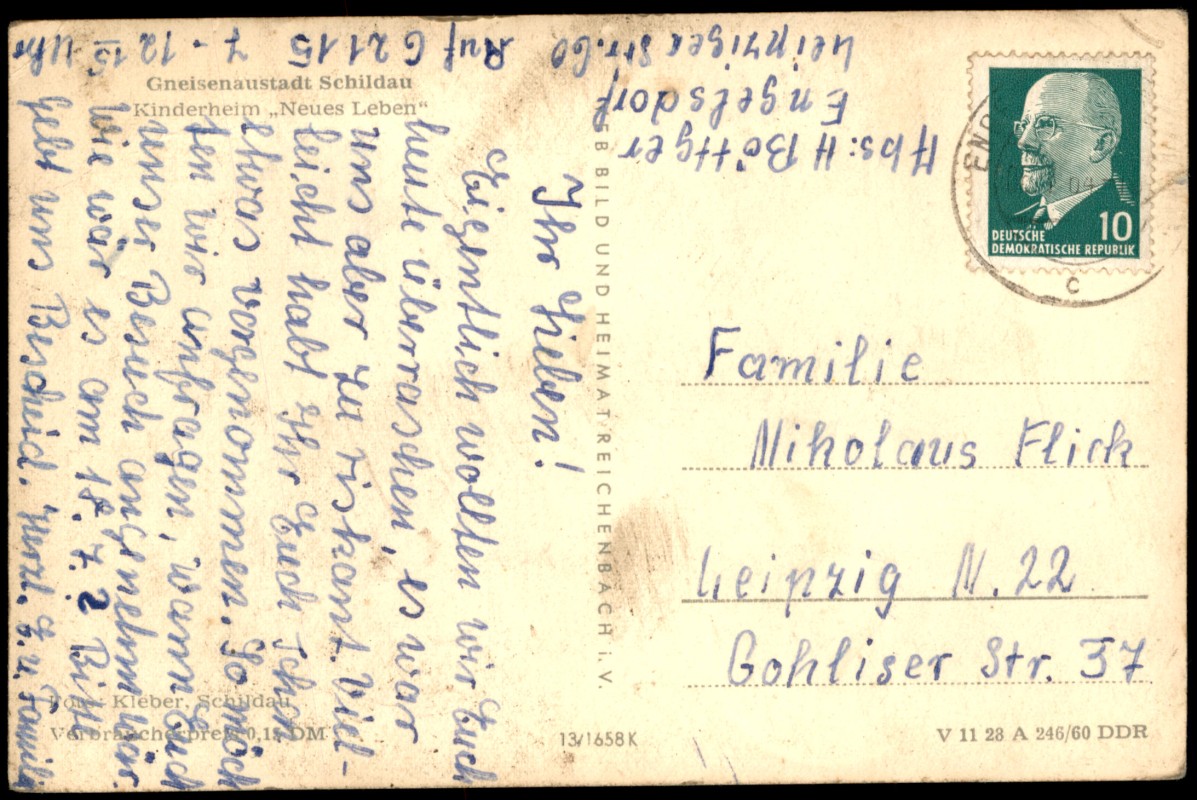 Gneisenaustadt Schildau
Kinderheim „Neues Leben“
Ihr Lieben!
Eigentlich wollten wir Euch
heute überraschen, es war
uns aber zu riskant. Viel-
leicht habt Ihr Euch schon
etwas vorgenommen. So möch
ten wir anfragen, wann Euch
unser Besuch angenehm wär.
Wie wär es am 18. 7.? Bitte
gebt uns Bescheid. Herzl. g. u. Familie
Ruf 62115 7 - 12 15 Uhr
Abs: H Böttger
Engelsdorf
Leipziger Str. 60
VEB BILD UND HEIMAT REICHENBACH i. V.
DEUTSCHE
DEMOKRATISCHE REPUBLIK
10
C
Familie
Nikolaus Flick
Leipzig N. 22
Gohliser Str. 37
Foto: Kleber, Schildau
Verbraucherpreis 0,15 DM
13/1658 K
V 11 28 A 246/60 DDR